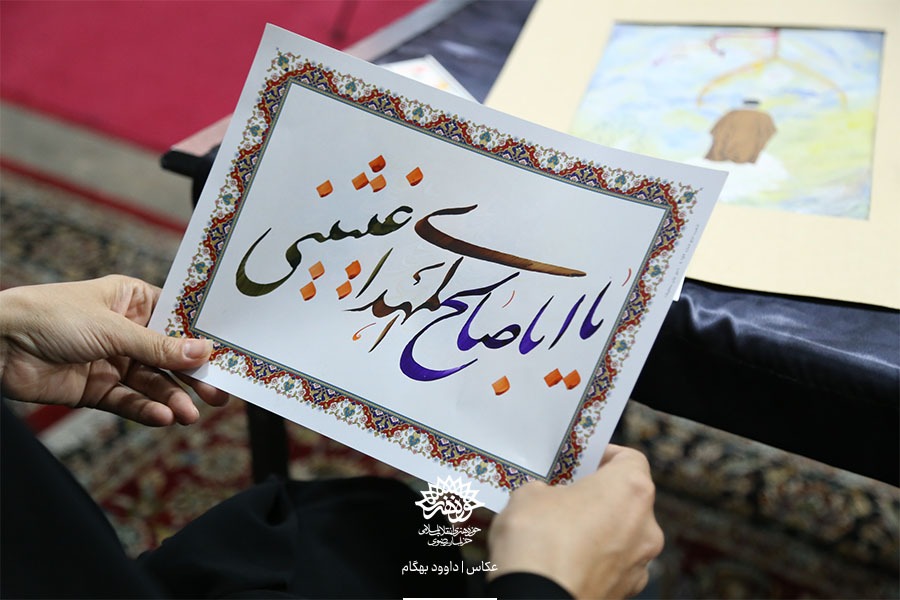 یا اباصالح المهدی اغیثینی
حوزه هنری
حوزه هنری انقلاب اسلامی
خراسان رضوی
عکاس | داوود بهگام